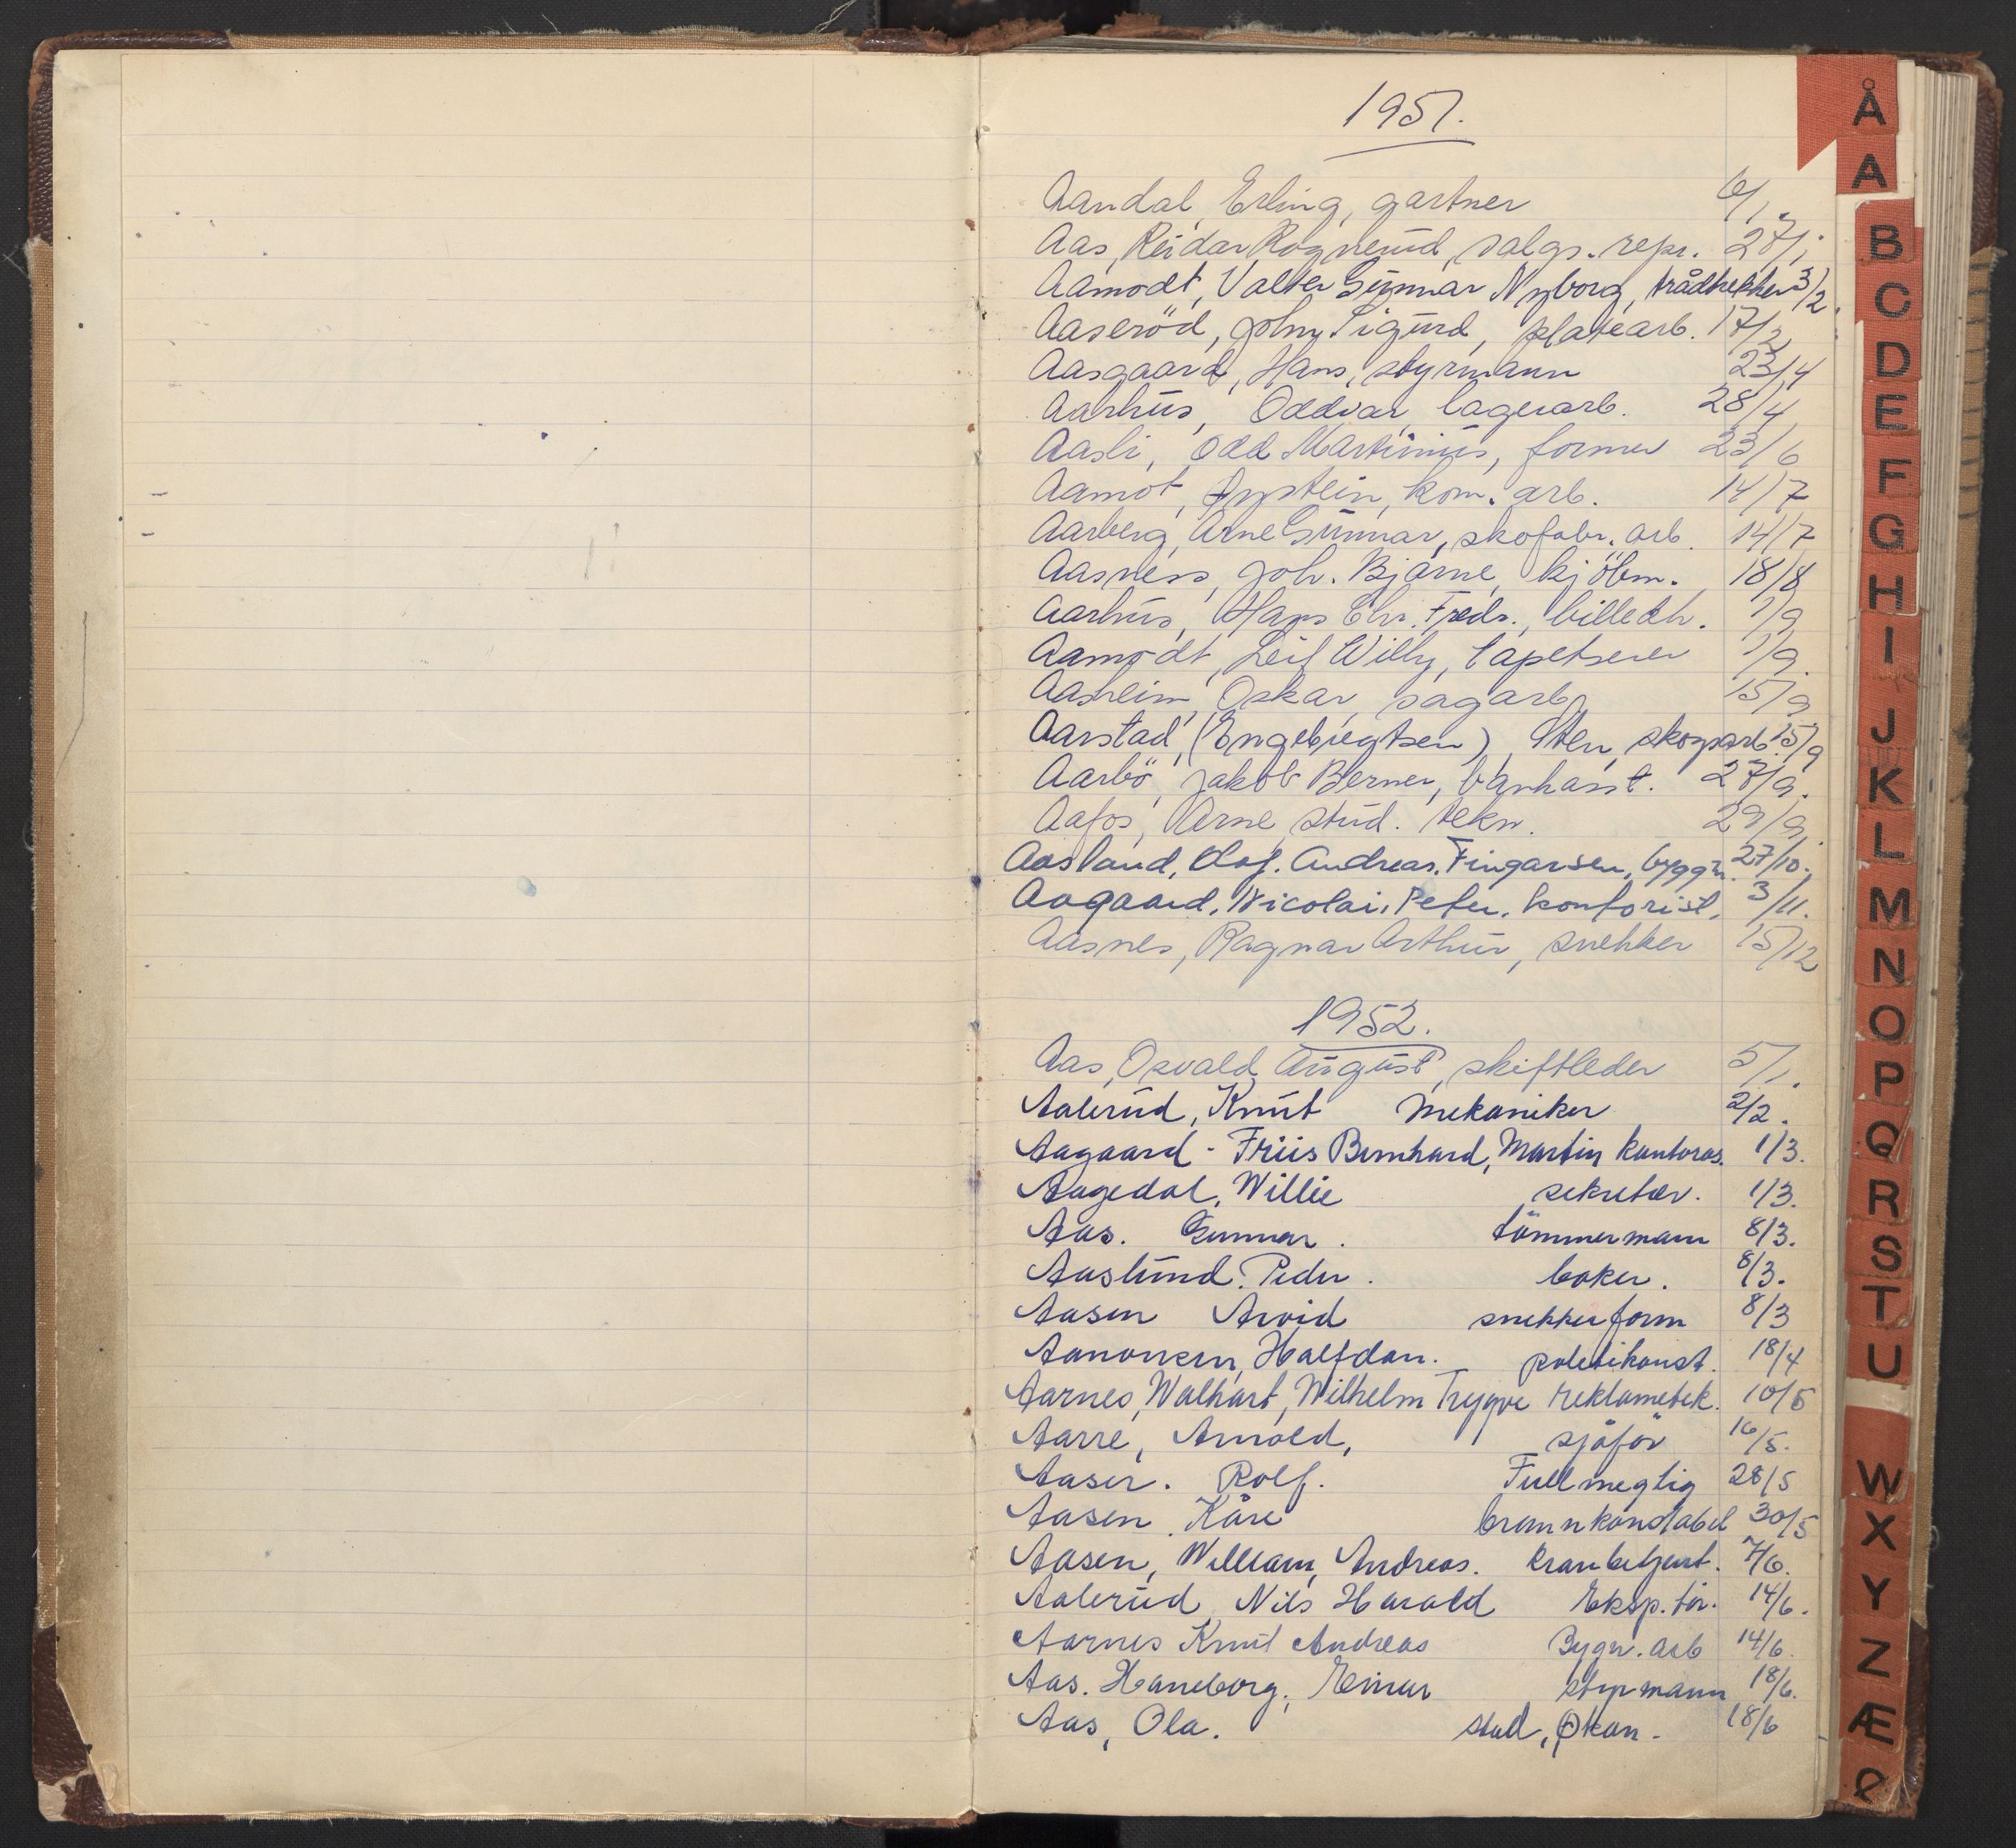 1951.
Aandal, Erling, gartner 6/1.
Aas, Reidar Rognerud, salgs. repr. 27/1.
Aamodt, Valter Gunnar Nyborg, trådtrekker 3/2.
Aaseröd, John Sigurd, platearb. 17/2
Aasgaard, Hans, styrmann 23/4
Aarhus, Oddvar, lagerarb. 28/4
Aasli, Odd Martinius, former 23/6
Aamot, Øystein, kom. arb. 14/7
Aarberg, Arne Gunnar, skofabr. arb. 14/7
Aasness, Joh. Bjarne, kjöbm. 18/8
Aarhus, Hans Chr. Fredr., billedh. 1/9
Aamodt, Leif Willy, tapetserer 1/9.
Aasheim, Oskar, sagarb. 15/9
Aarstad, (Engebregtsen), Sten, skogsarb. 15/9
Aarbö, Jakob Berner, bankasst. 27/9.
Aafos, Arne, stud. tekn. 29/9.
Aasland, Olaf. Andreas. Fingarsen, byggm. 27/10.
Aagaard, Nicolai, Peter, kontorist, 3/11.
Aasnes, Ragnar Arthur, snekker 15/12
1952.
Aas, Osvald August, skiftleder 5/1.
Aalerud, Knut mekaniker 2/2.
Aagaard - Friis Bernhard, Martin kontoras. 1/3.
Aagedal, Willie sekretær. 1/3.
Aas. Gunnar. tömmermann 8/3.
Aaslund. Peder. baker. 8/3.
Aasen Arvid snekkerform 8/3
Aanonsen, Halfdan. politikonst. 18/4
Aarnes, Walhart, Wilhelm Trygve reklametek. 10/5
Aarre, Arnold, sjåför 16/5.
Aaser. Rolf. Fullmegtig 28/5
Aasen. Kåre brannkonstabel 30/5
Aasen, William, Andreas. kranbetjent. 7/6.
Aalerud, Nils Harald Eksp. tör. 14/6.
Aarnes Knut Andreas Bygn. arb 14/6.
Aas. Haneborg, Einar styrmann 18/6.
Aas, Ola. stud, Økon. 18/6
Å
A
B
C
D
E
F
G
H
I
J
K
L
M
N
O
P
Q
R
S
T
U
W
X
Y
Z
Æ